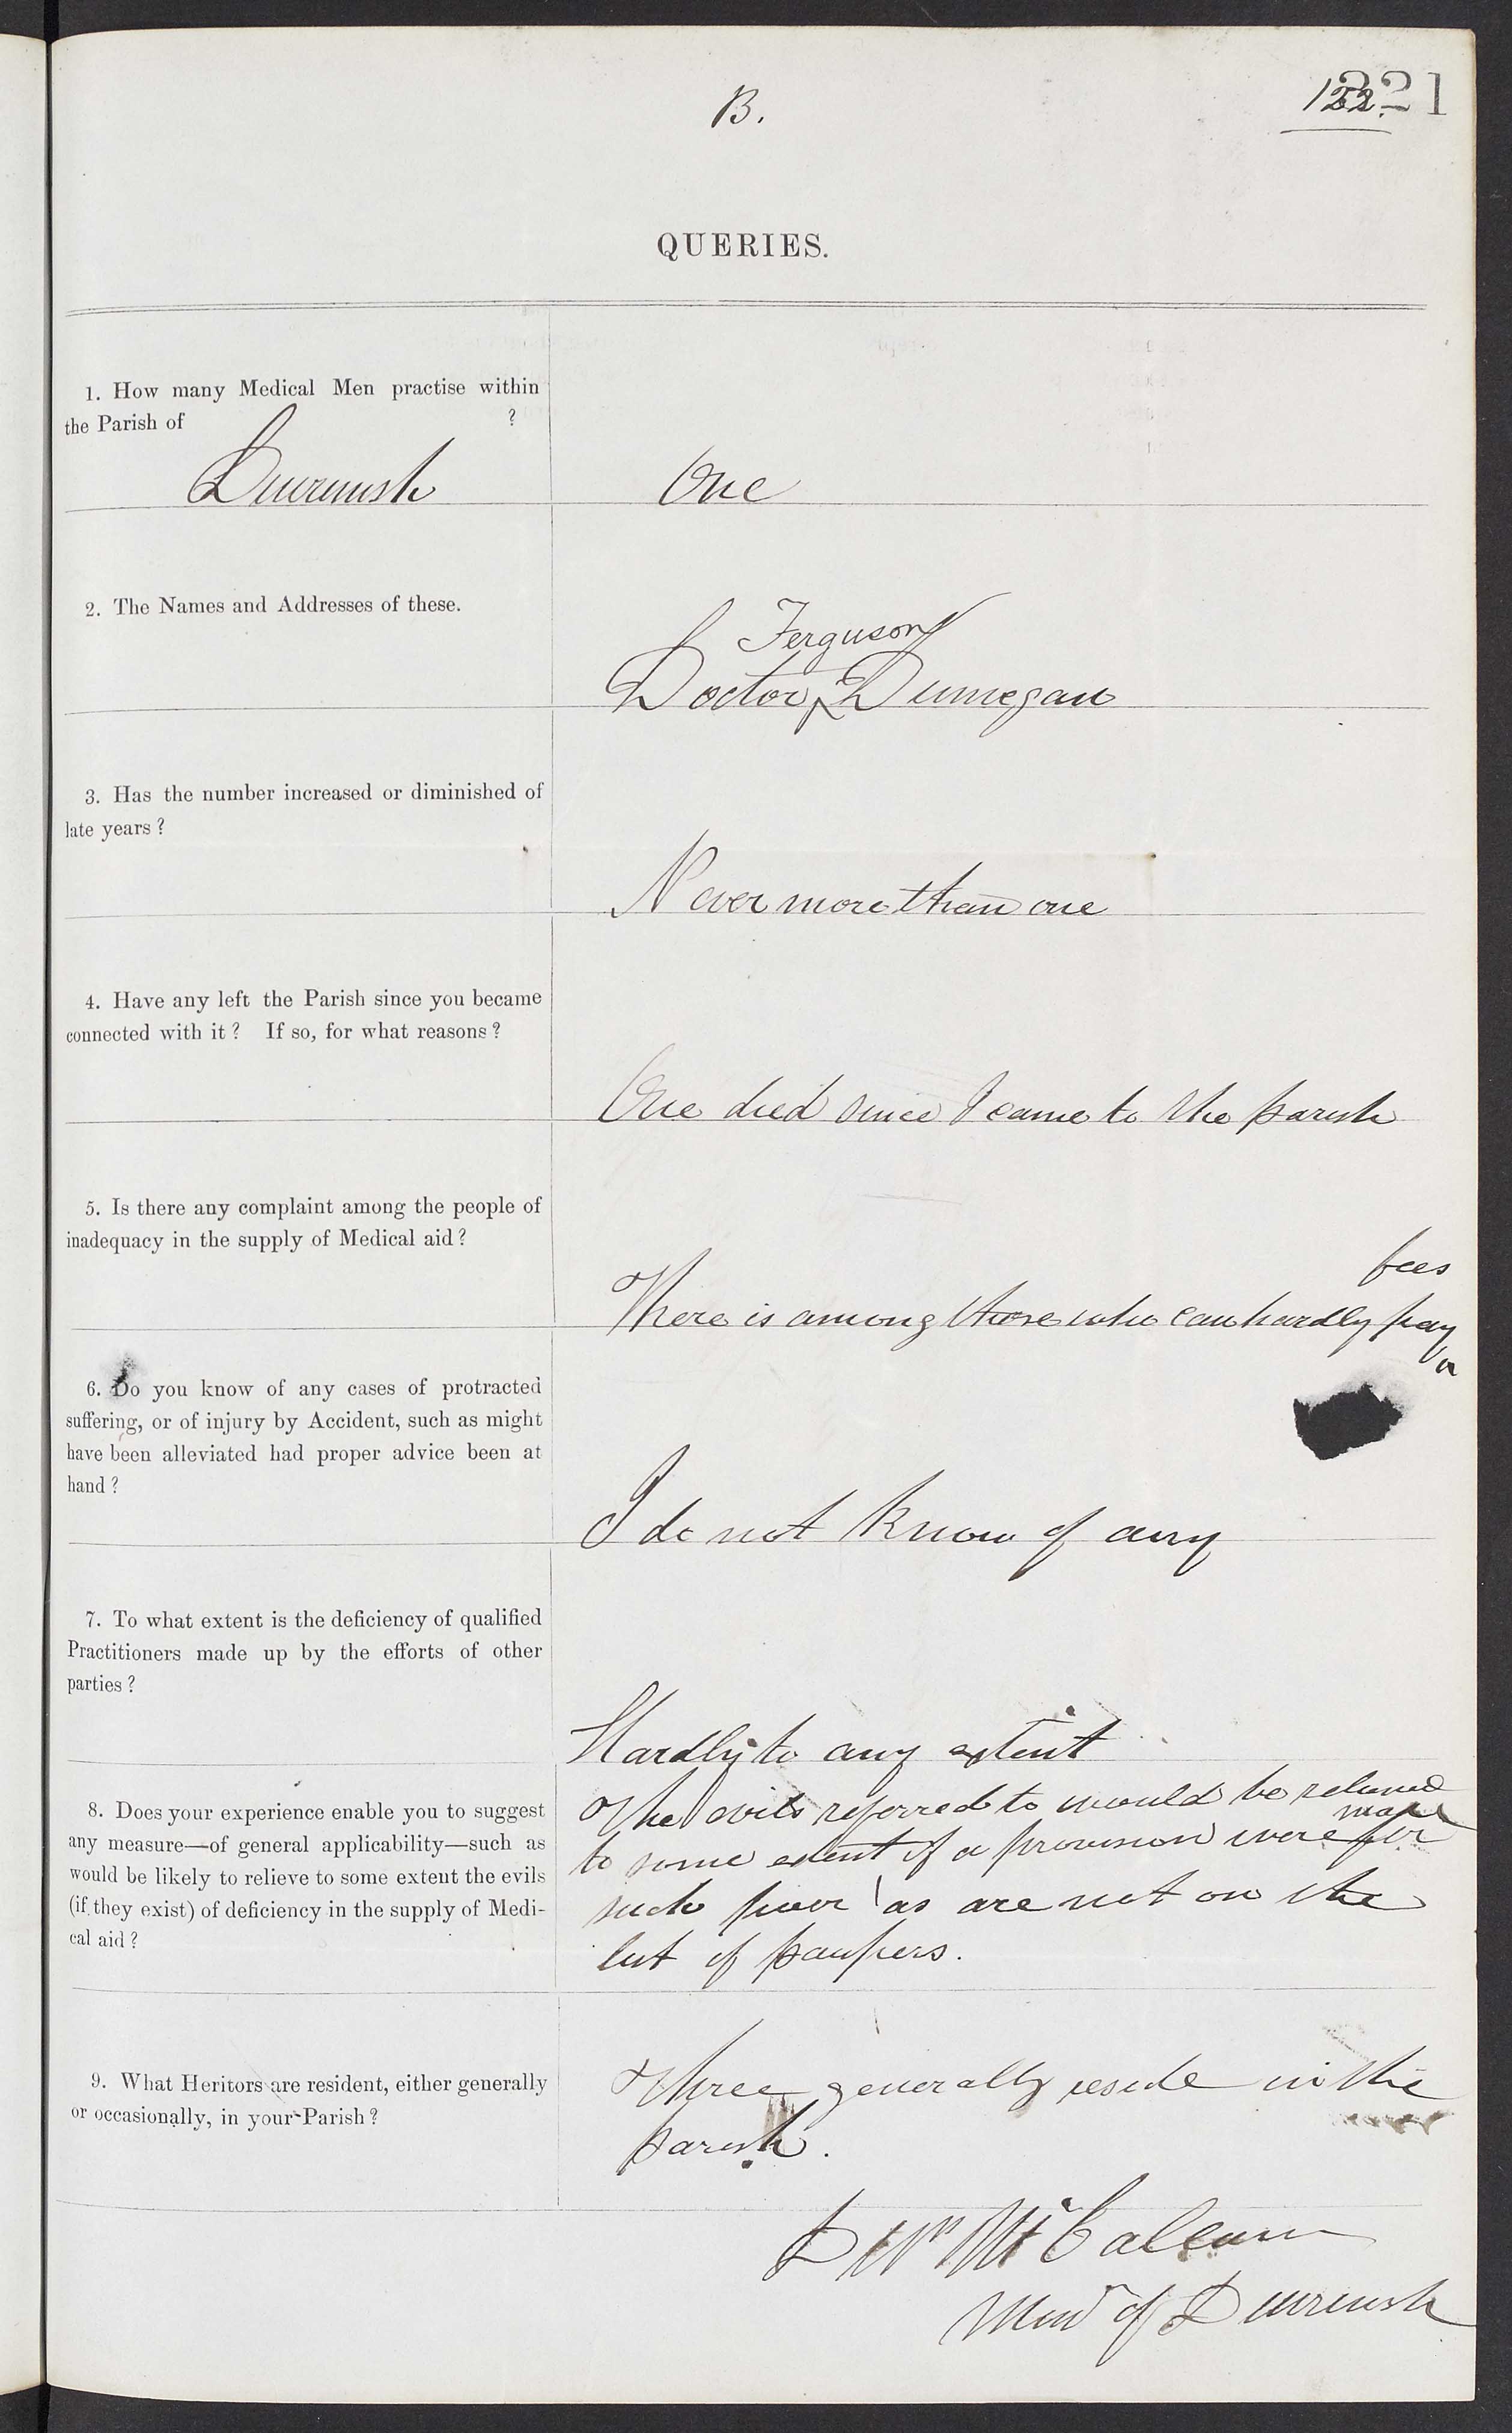 B.
221
QUERIES.
1. How many Medical Men practise within
the Parish of ?
Duirinish
One
2. The Names and Addresses of these.
Ferguson
Doctor Dunvegan
3. Has the number increased or diminished of
late years ?
Never more than one
4. Have any left the Parish since you became
connected with it ? If so, for what reasons ?
One died since I came to the parish
5. Is there any complaint among the people of
inadequacy in the supply of Medical aid ?
fees
There is among those who can hardly pay
6. Do you know of any cases of protracted
suffering, or of injury by Accident, such as might
have been alleviated had proper advice been at
hand ?
I do not know of any
7. To what extent is the deficiency of qualified
Practitioners made up by the efforts of other
parties ?
Hardly to any extent
8. Does your experience enable you to suggest
any measure—of general applicability—such as
would be likely to relieve to some extent the evils
(if they exist) of deficiency in the supply of Medi-
cal aid ?
The evils referred to would be relieved
made
to some extent if a provision were for
such poor as are not on the
list of paupers.
9. What Heritors are resident, either generally
or occasionally, in your Parish ?
Three generally reside in the
parish.
McCalum
Minr of Duirinish